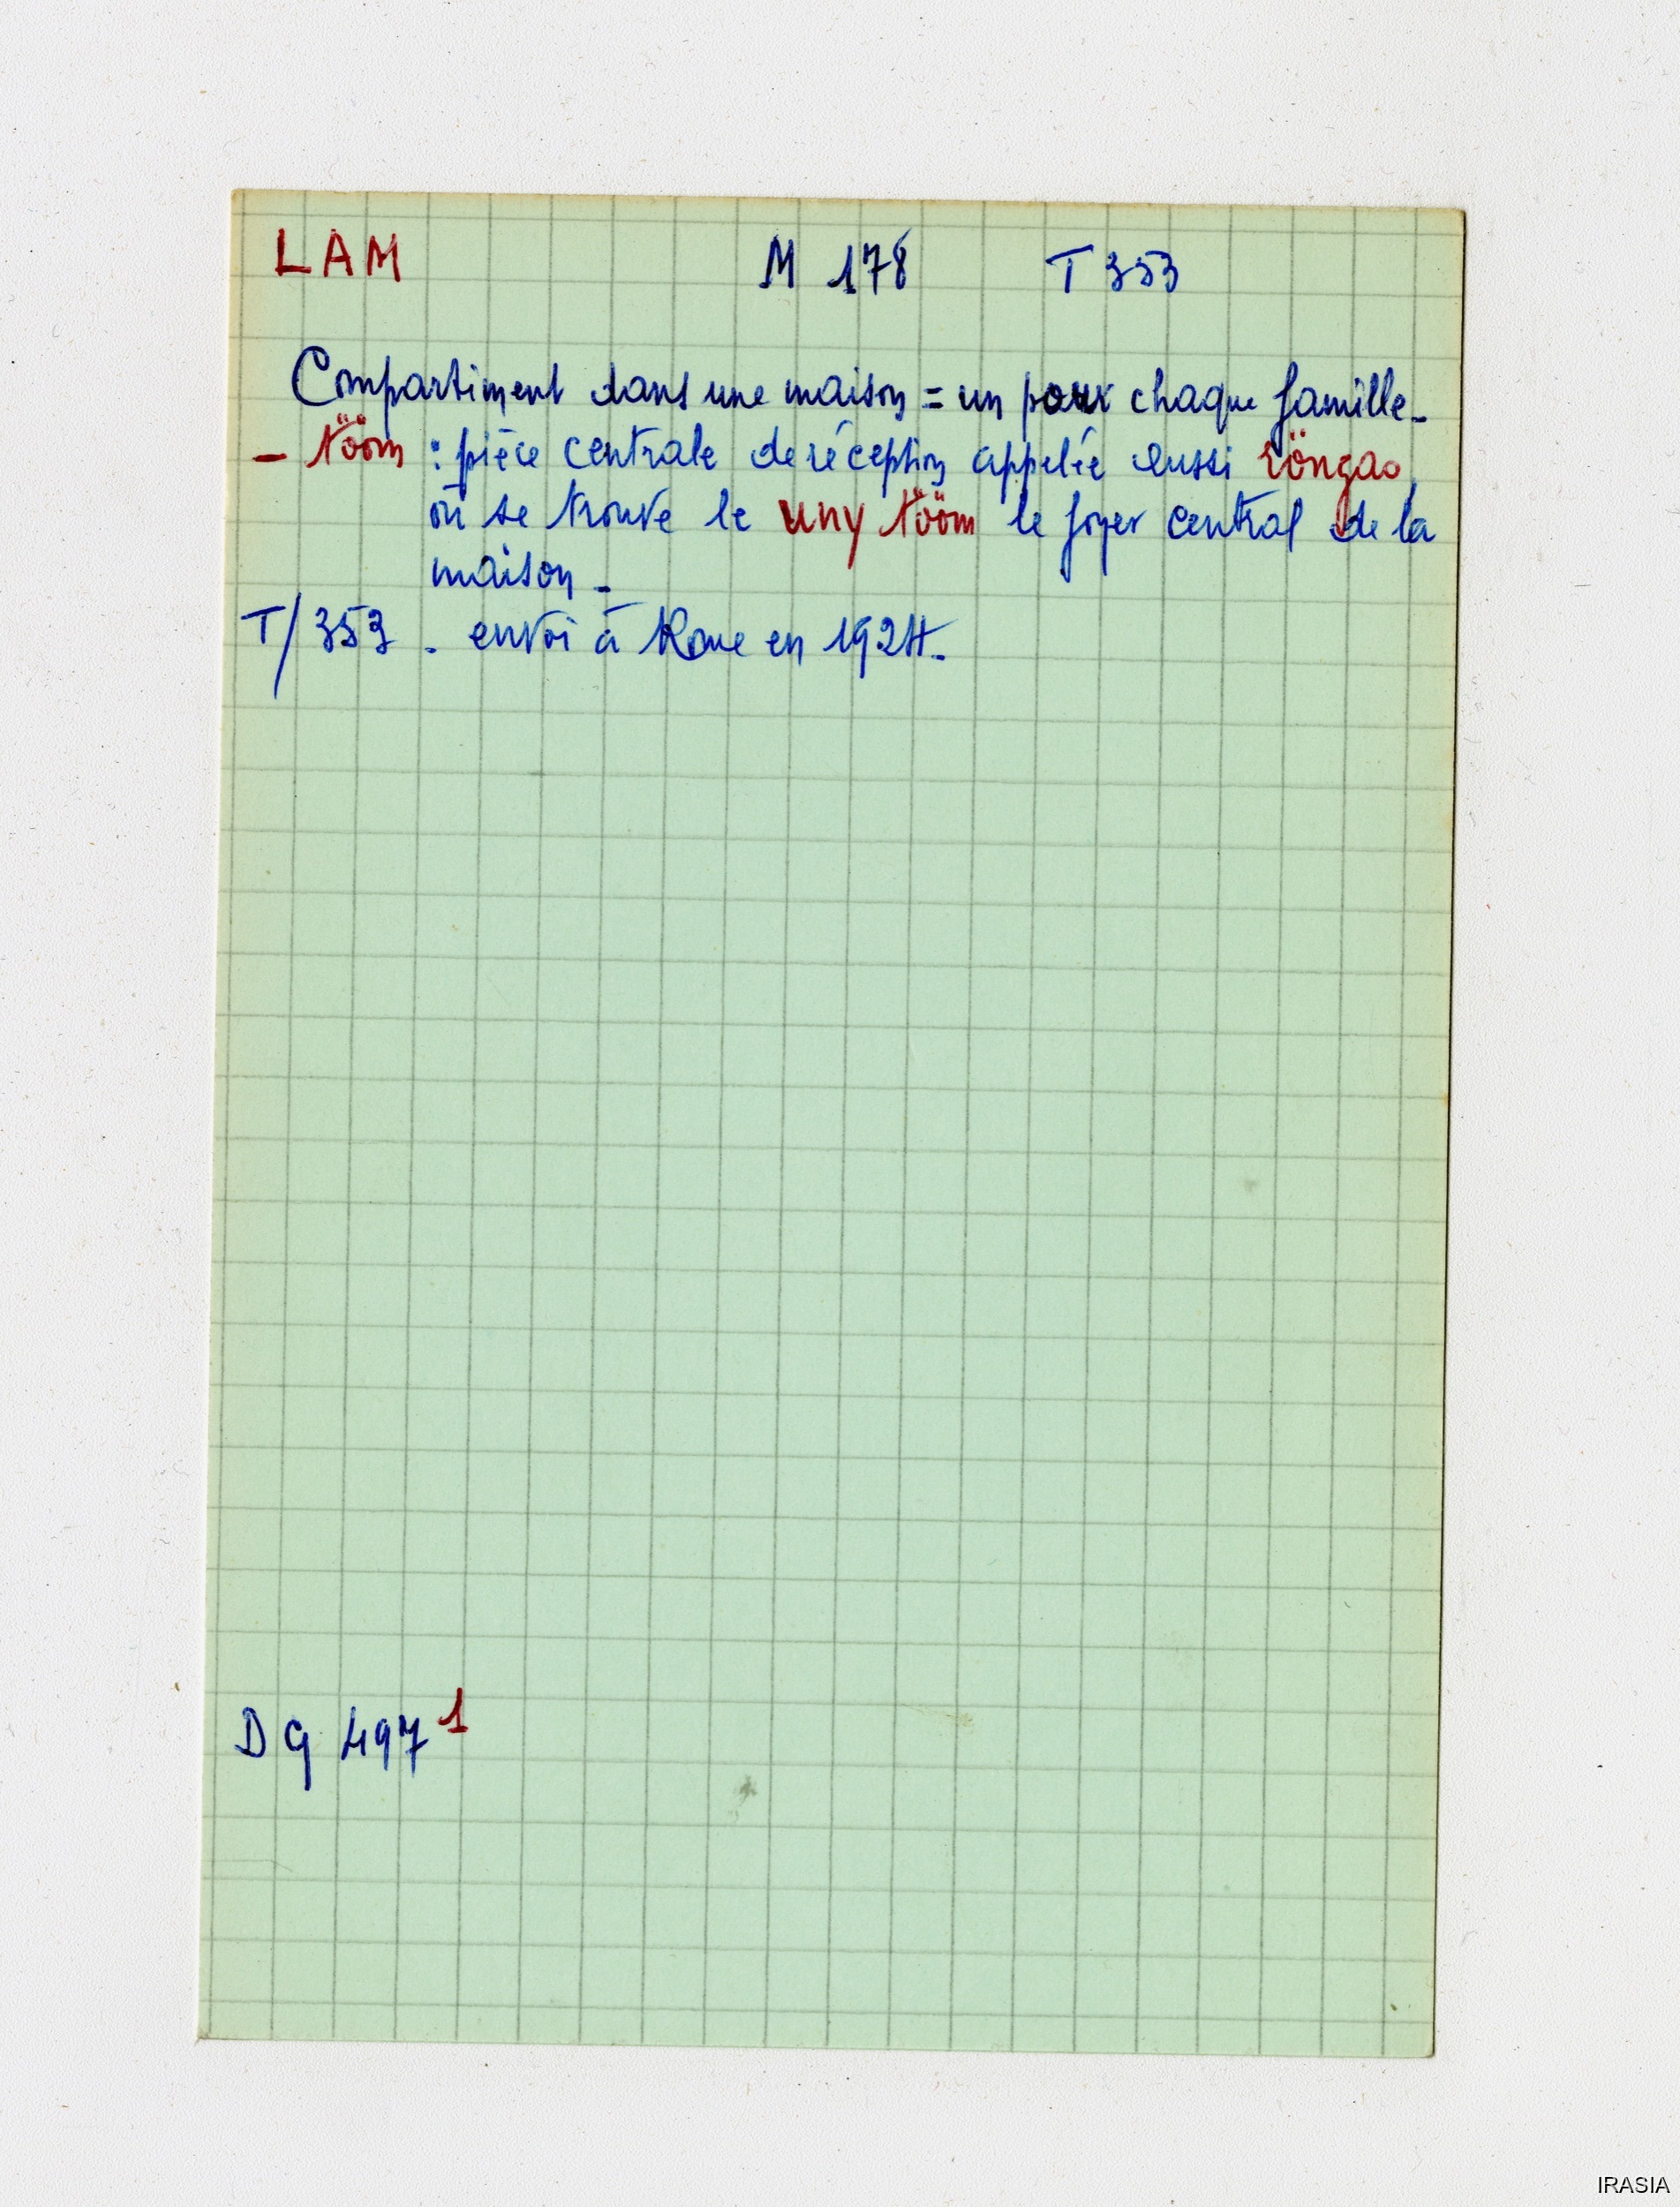 LAM M 178 T 353
Compartiment dans une maison = un pour chaque famille_
_ tööm : pièce centrale de réception appelée aussi röngao
où se trouve le uny tööm le foyer central de la
maison _
T/353 - envoi à Rome en 1924_
DG 497 1
IRASIA